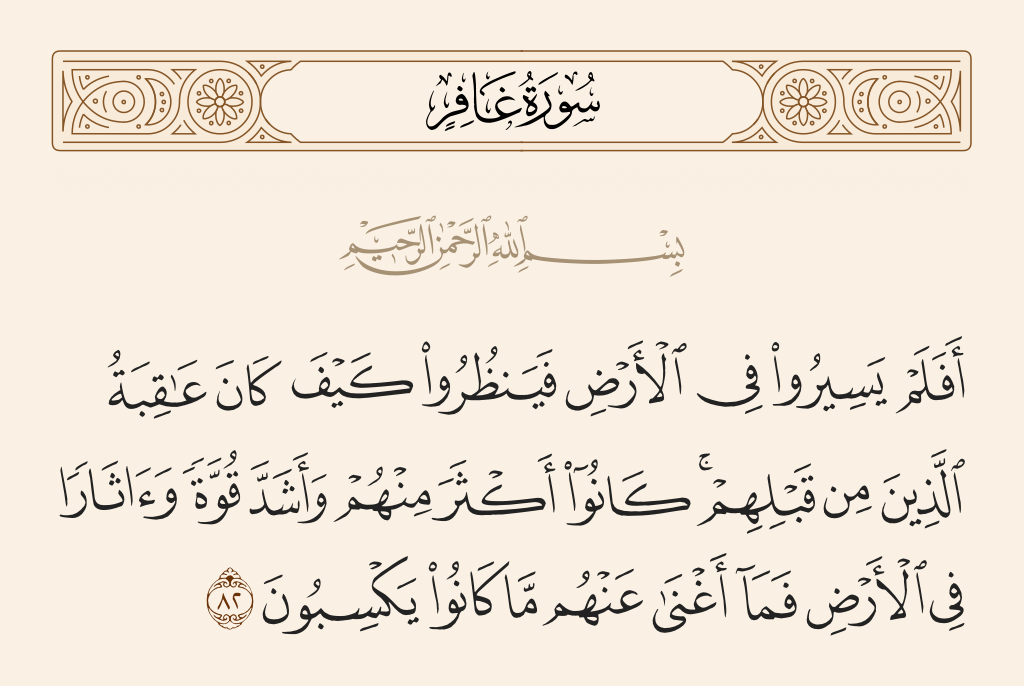 سُورَةُ غَافِرٍ
بِسْمِ ٱللَّهِ ٱلرَّحْمَٰنِ ٱلرَّحِيمِ
أَفَلَمْ يَسِيرُوا۟ فِى ٱلْأَرْضِ فَيَنظُرُوا۟ كَيْفَ كَانَ عَـٰقِبَةُ
ٱلَّذِينَ مِن قَبْلِهِمْ ۚ كَانُوٓا۟ أَكْثَرَ مِنْهُمْ وَأَشَدَّ قُوَّةً وَءَاثَارًا
فِى ٱلْأَرْضِ فَمَآ أَغْنَىٰ عَنْهُم مَّا كَانُوا۟ يَكْسِبُونَ ٨٢